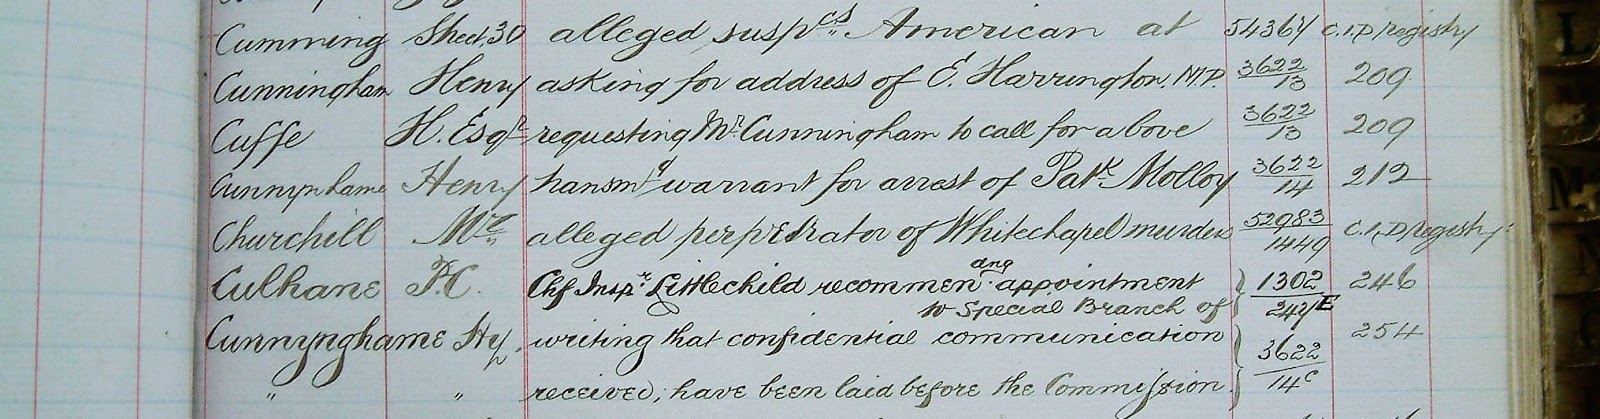 Cumming Sheet 30 alleged susp^cs American at 54364 C.I.D registry
Cunningham Henry asking for address of E. Harrington. M.P. 3622/13 209
Cuffe H. Esq^r requesting M^r Cunningham to call for above 3622/13 209
Cunnynhame Henry transm^g warrant for arrest of Pat^k Molloy 3622/14 212
Churchill M^r alleged perpetrator of Whitechapel murders 52983/1449 C.I.D registry
Culhane P.C. Chf Insp^r Littlechild recommen^dng appointment 1302/247E 246
to Special Branch of
Cunnynghame Hy. writing that confidential communication 3622/14^c 254
" " received, have been laid before the Commission